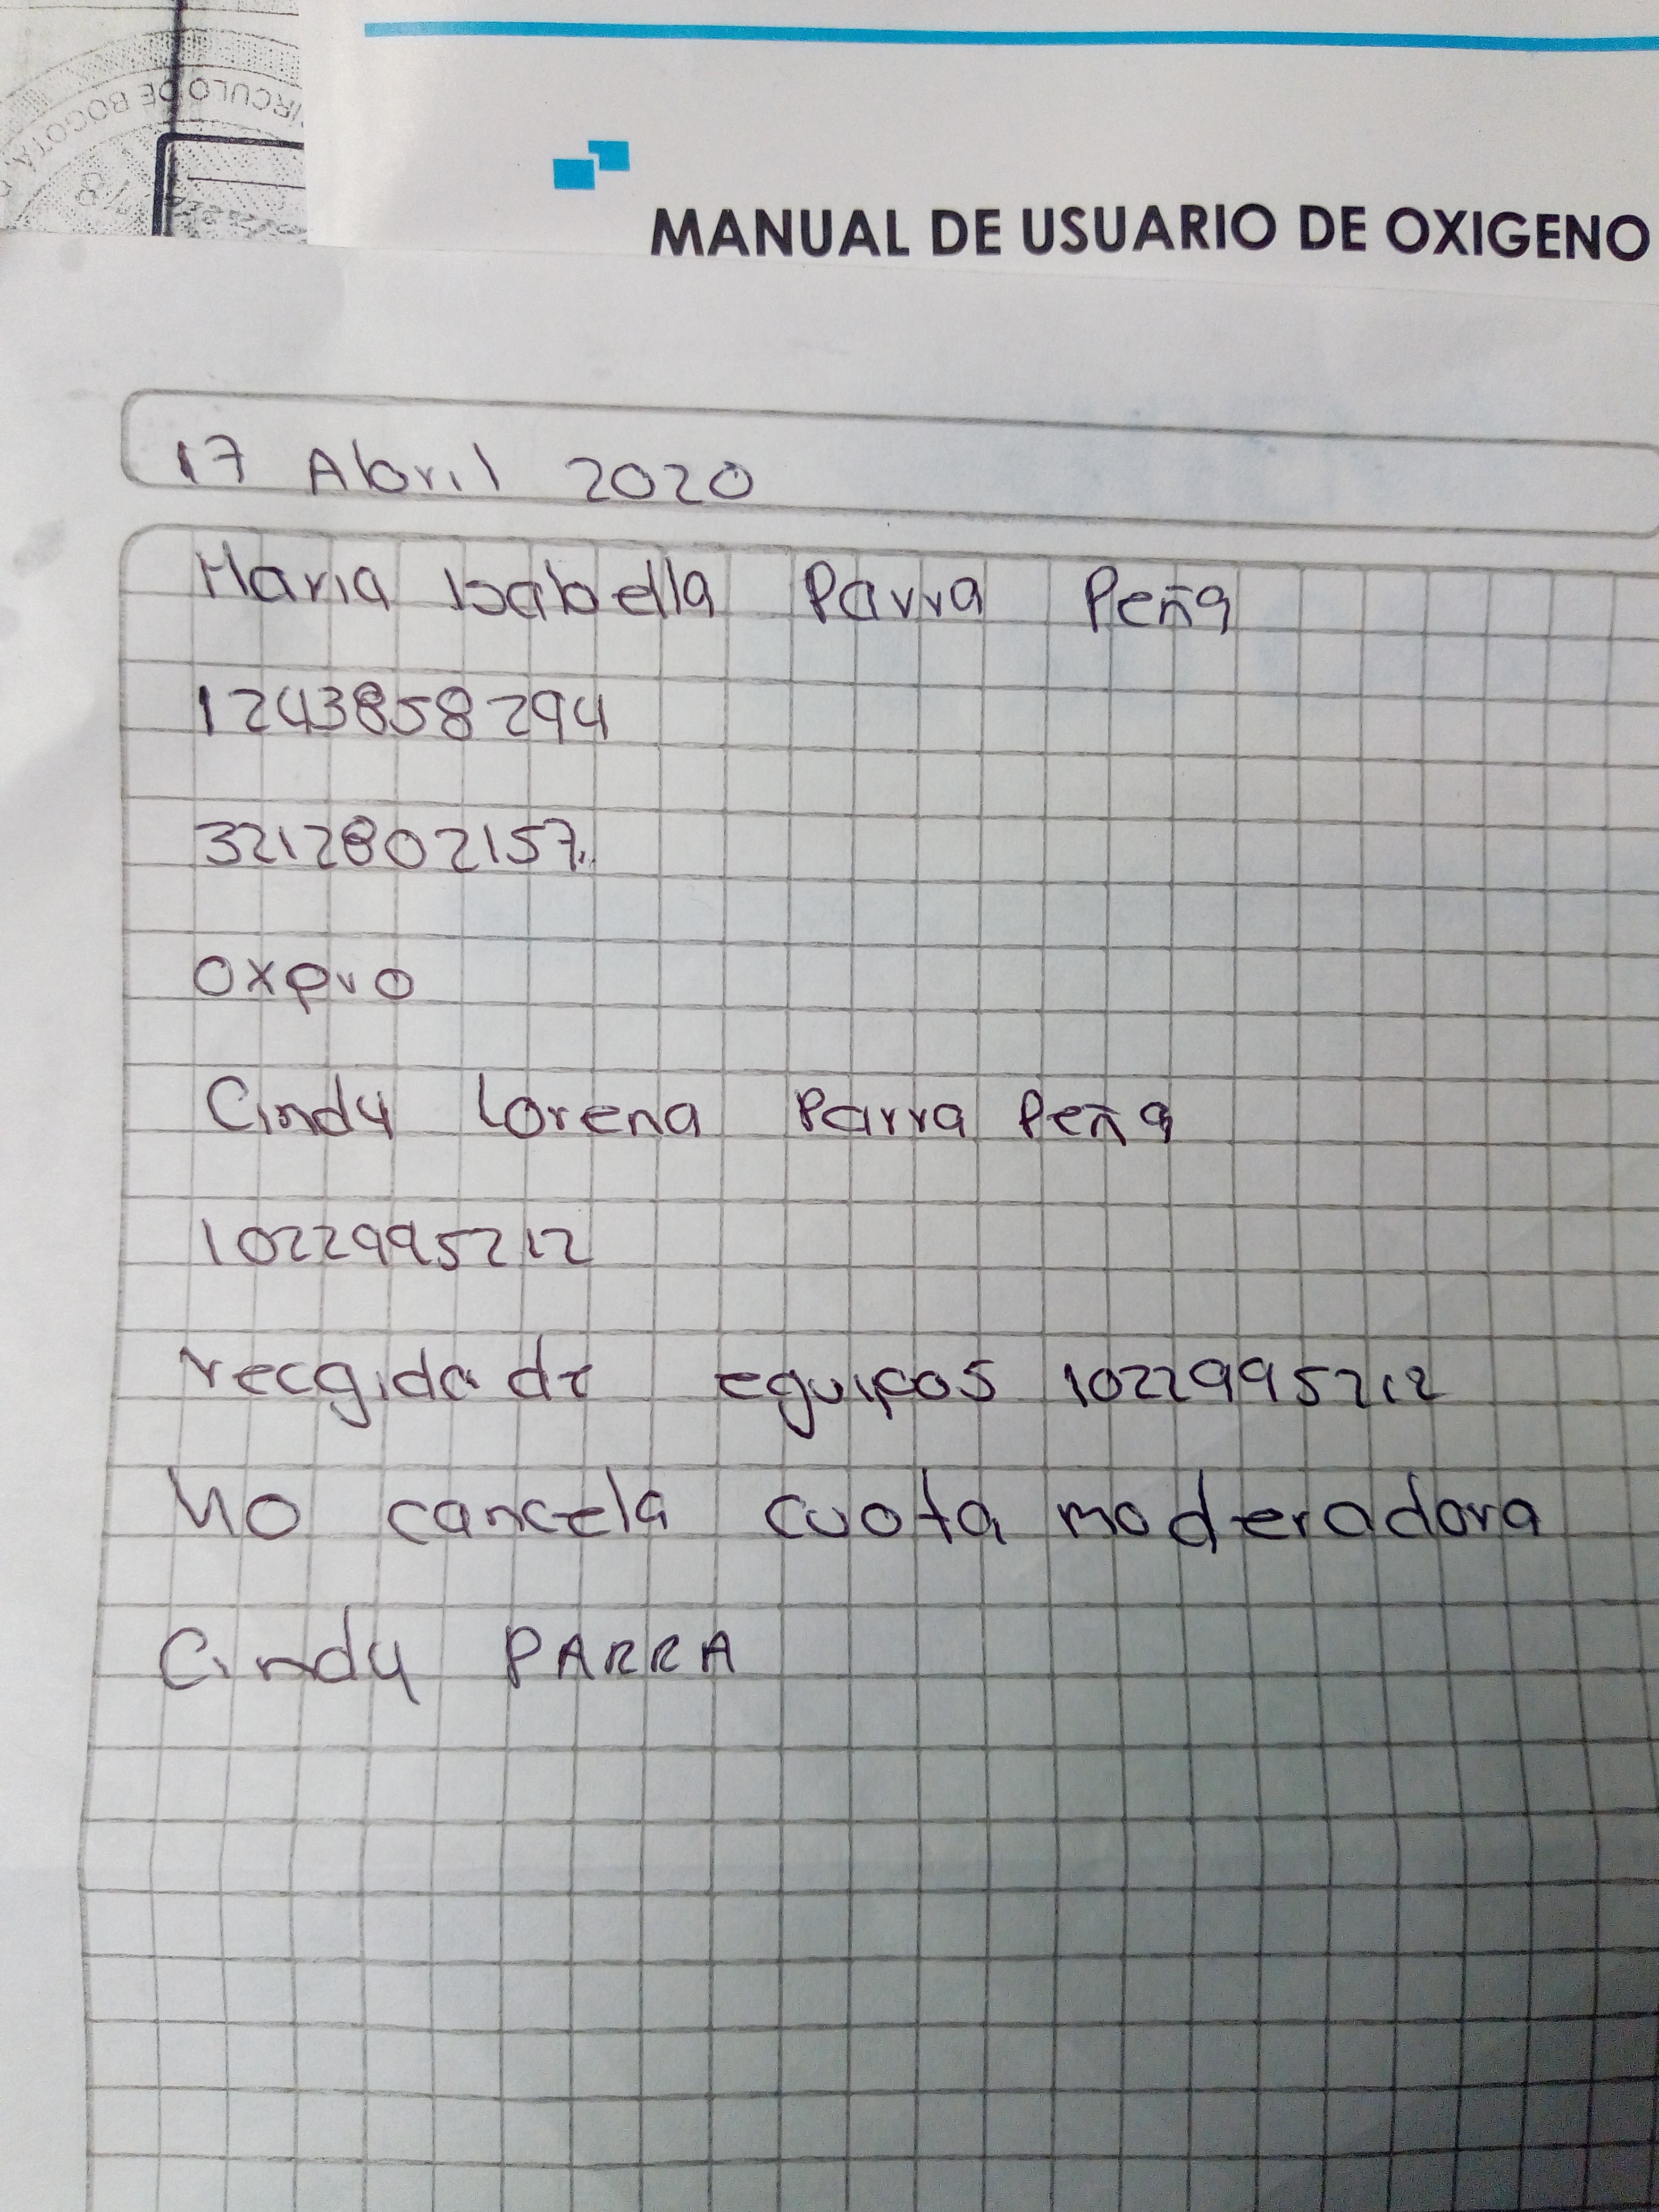 CIRCULO DE BOGOTA
MANUAL DE USUARIO DE OXIGENO
17 Abril 2020
Maria Isabella Parra Peña
1243858294
3212802157.
Oxpro
Cindy Lorena Parra Peña
1022995212
recgida de equipos 1022995212
No cancela cuota moderadora
Cindy PARRA